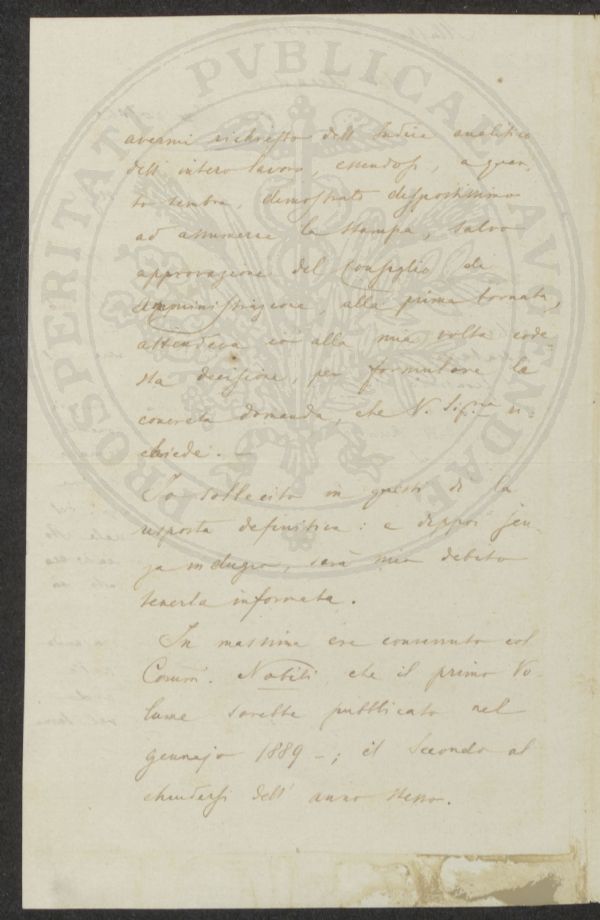 PROSPERITATI PVBLICAE AVGENDAE
avermi richiesto dell'Indice analitico
dell'intero lavoro, essendosi, a quan-
to sembra, dimostrato dispostissimo
ad assumerne la stampa, salvo
approvazione del Consiglio di
Amministrazione, alla prima tornata,
attendeva io alla mia volta code-
sta decisione, per formulare la
concreta domanda, che V. Sig.ria ri-
chiede. —
Io sollecito in questi dì la
risposta definitiva: e dippoi sen-
za indugio, sarà mio debito
tenerla informata.
In massima era convenuto col
Comm. Nobili, che il primo Vo-
lume sarebbe pubblicato nel
gennajo 1889 -; il Secondo al
chiudersi dell'anno stesso.